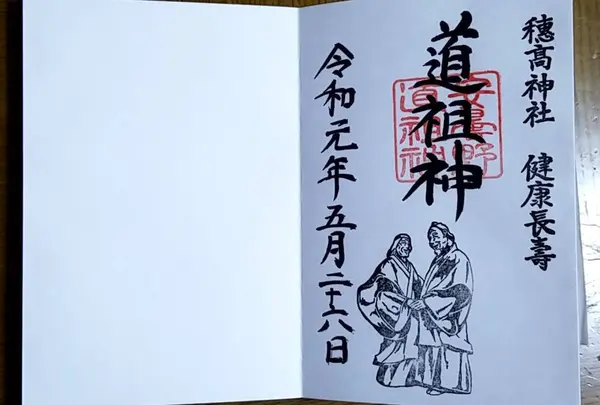 穂高神社 健康長壽
道祖神
安曇野
道祖神
令和元年五月二十六日